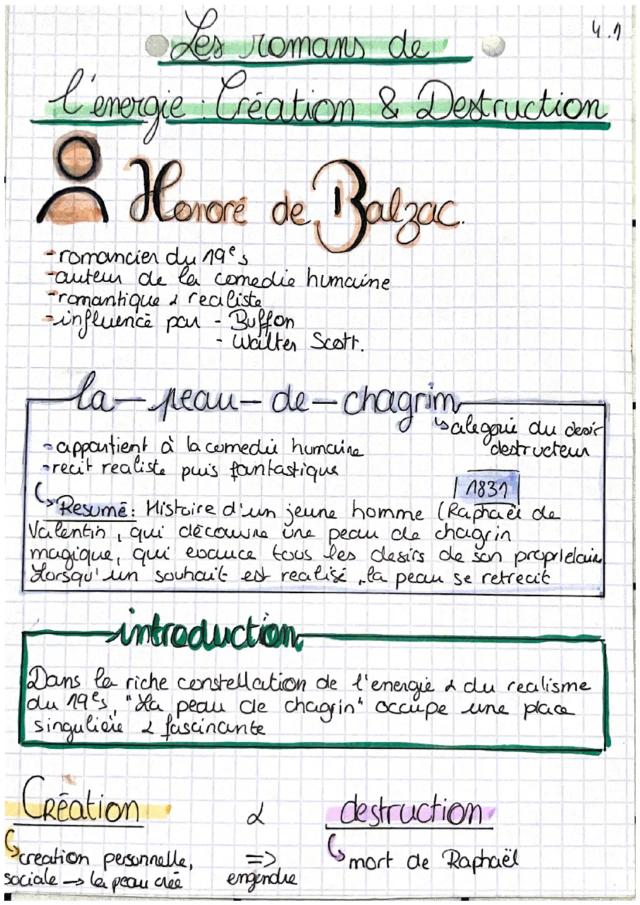 4.1
Les romans de
l'énergie : Création & Destruction
Honoré de Balzac.
- romancier du 19e s
- auteur de la comedie humaine
- romantique & realiste
- influencé par - Buffon
- Walter Scott.
la-peau-de-chagrim
↳ alegorie du desir
destructeur
- appartient à la comedie humaine
- recit realiste puis fantastique
1831
↳ Resumé : Histoire d'un jeune homme (Raphaël de
Valentin, qui découvre une peau de chagrin
magique, qui exauce tous les desirs de son proprietaire
Lorsqu'un souhait est realisé, la peau se retrecit
introduction
Dans la riche constellation de l'energie & du realisme
du 19e s, "La peau de chagrin" occupe une place
singulière & fascinante
Création & destruction
↳ creation personnelle, => ↳ mort de Raphaël
sociale → la peau crée engendre